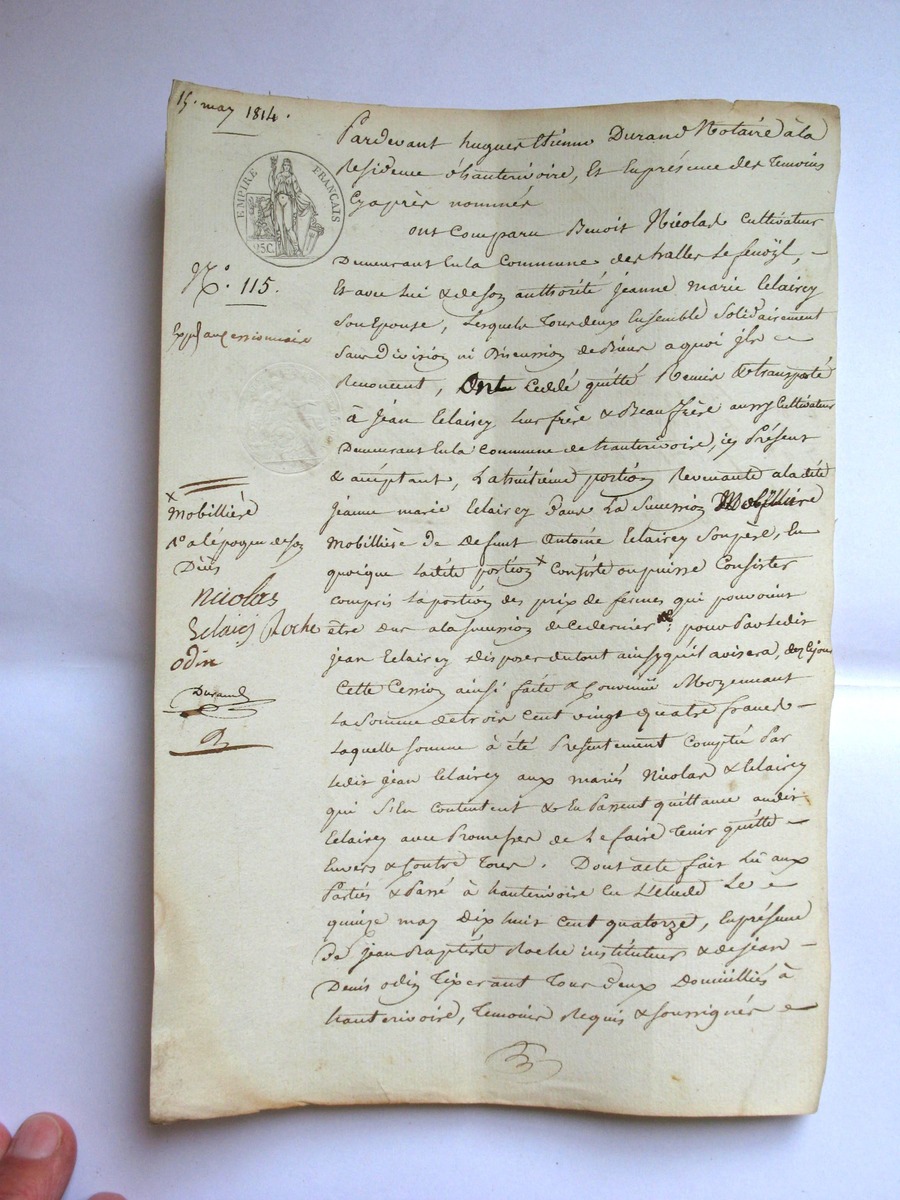 15. may 1814.
EMPIRE FRANÇAIS
25C.
N.° 115.
Exp.
au cessionnaire
×
Mobillière
a lépoque de son
Décès
Nicolas
Eclaicy Roche
odin
Durand
Pardevant hugues Etienne Durand Notaire à la
Residence d'hauterivoire, Et En présence des Temoins
Cyaprès nommés
ont Comparu Benoit Nicolas Cultivateur
Demeurant En la Commune des halles Le fenöyl, –
Et avec Lui & de son authorité jeanne marie Eclairey
Son Epouse, Lesquels Tous deux Ensemble Solidairement
Sans Division ni Discussion de Biens a quoi jls –
Renoncent, Ont Ceddé quitté Remis & transporté
à Jean Eclairey Leur frère & Beau frère aussy Cultivateur
Demeurant En la Commune de hauterivoire, icy Présent
& acceptant, La huitième portion Revenante a la dite
jeanne marie Eclairey Dans La Succession
Mobillière De Defunt Antoine Eclairey Son père, En
quoique Ladite portion × Consiste ou puisse Consister
compris La portion des prix de fermes qui pouvoient
être dus a la succession de ce dernier ; pour Par Ledit
jean Eclairey disposer du tout ainsy qu'il avisera, dez ce jour
Cette Cession ainsi faite & Convenue Moyennant
La Somme de trois cent vingt quatre francs –
Laquelle Somme à été Présentement Comptée Par
Ledit jean Eclairey aux mariés Nicolas & Eclairey
qui S'En Contentent & En Passent quittance audit
Eclairey avec Promesses de Le faire Tenir quitte –
Envers & Contre Tous. Dont acte fait Lû aux
Parties & Passé à hauterivoire En L'étude Le –
quinze may Dix huit cent quatorze, En présence
De jean Baptiste Roche instituteur & de jean –
Denis odin Tixerant Tous deux Domiciliés à
hauterivoire, Temoins Requis & soussignés –